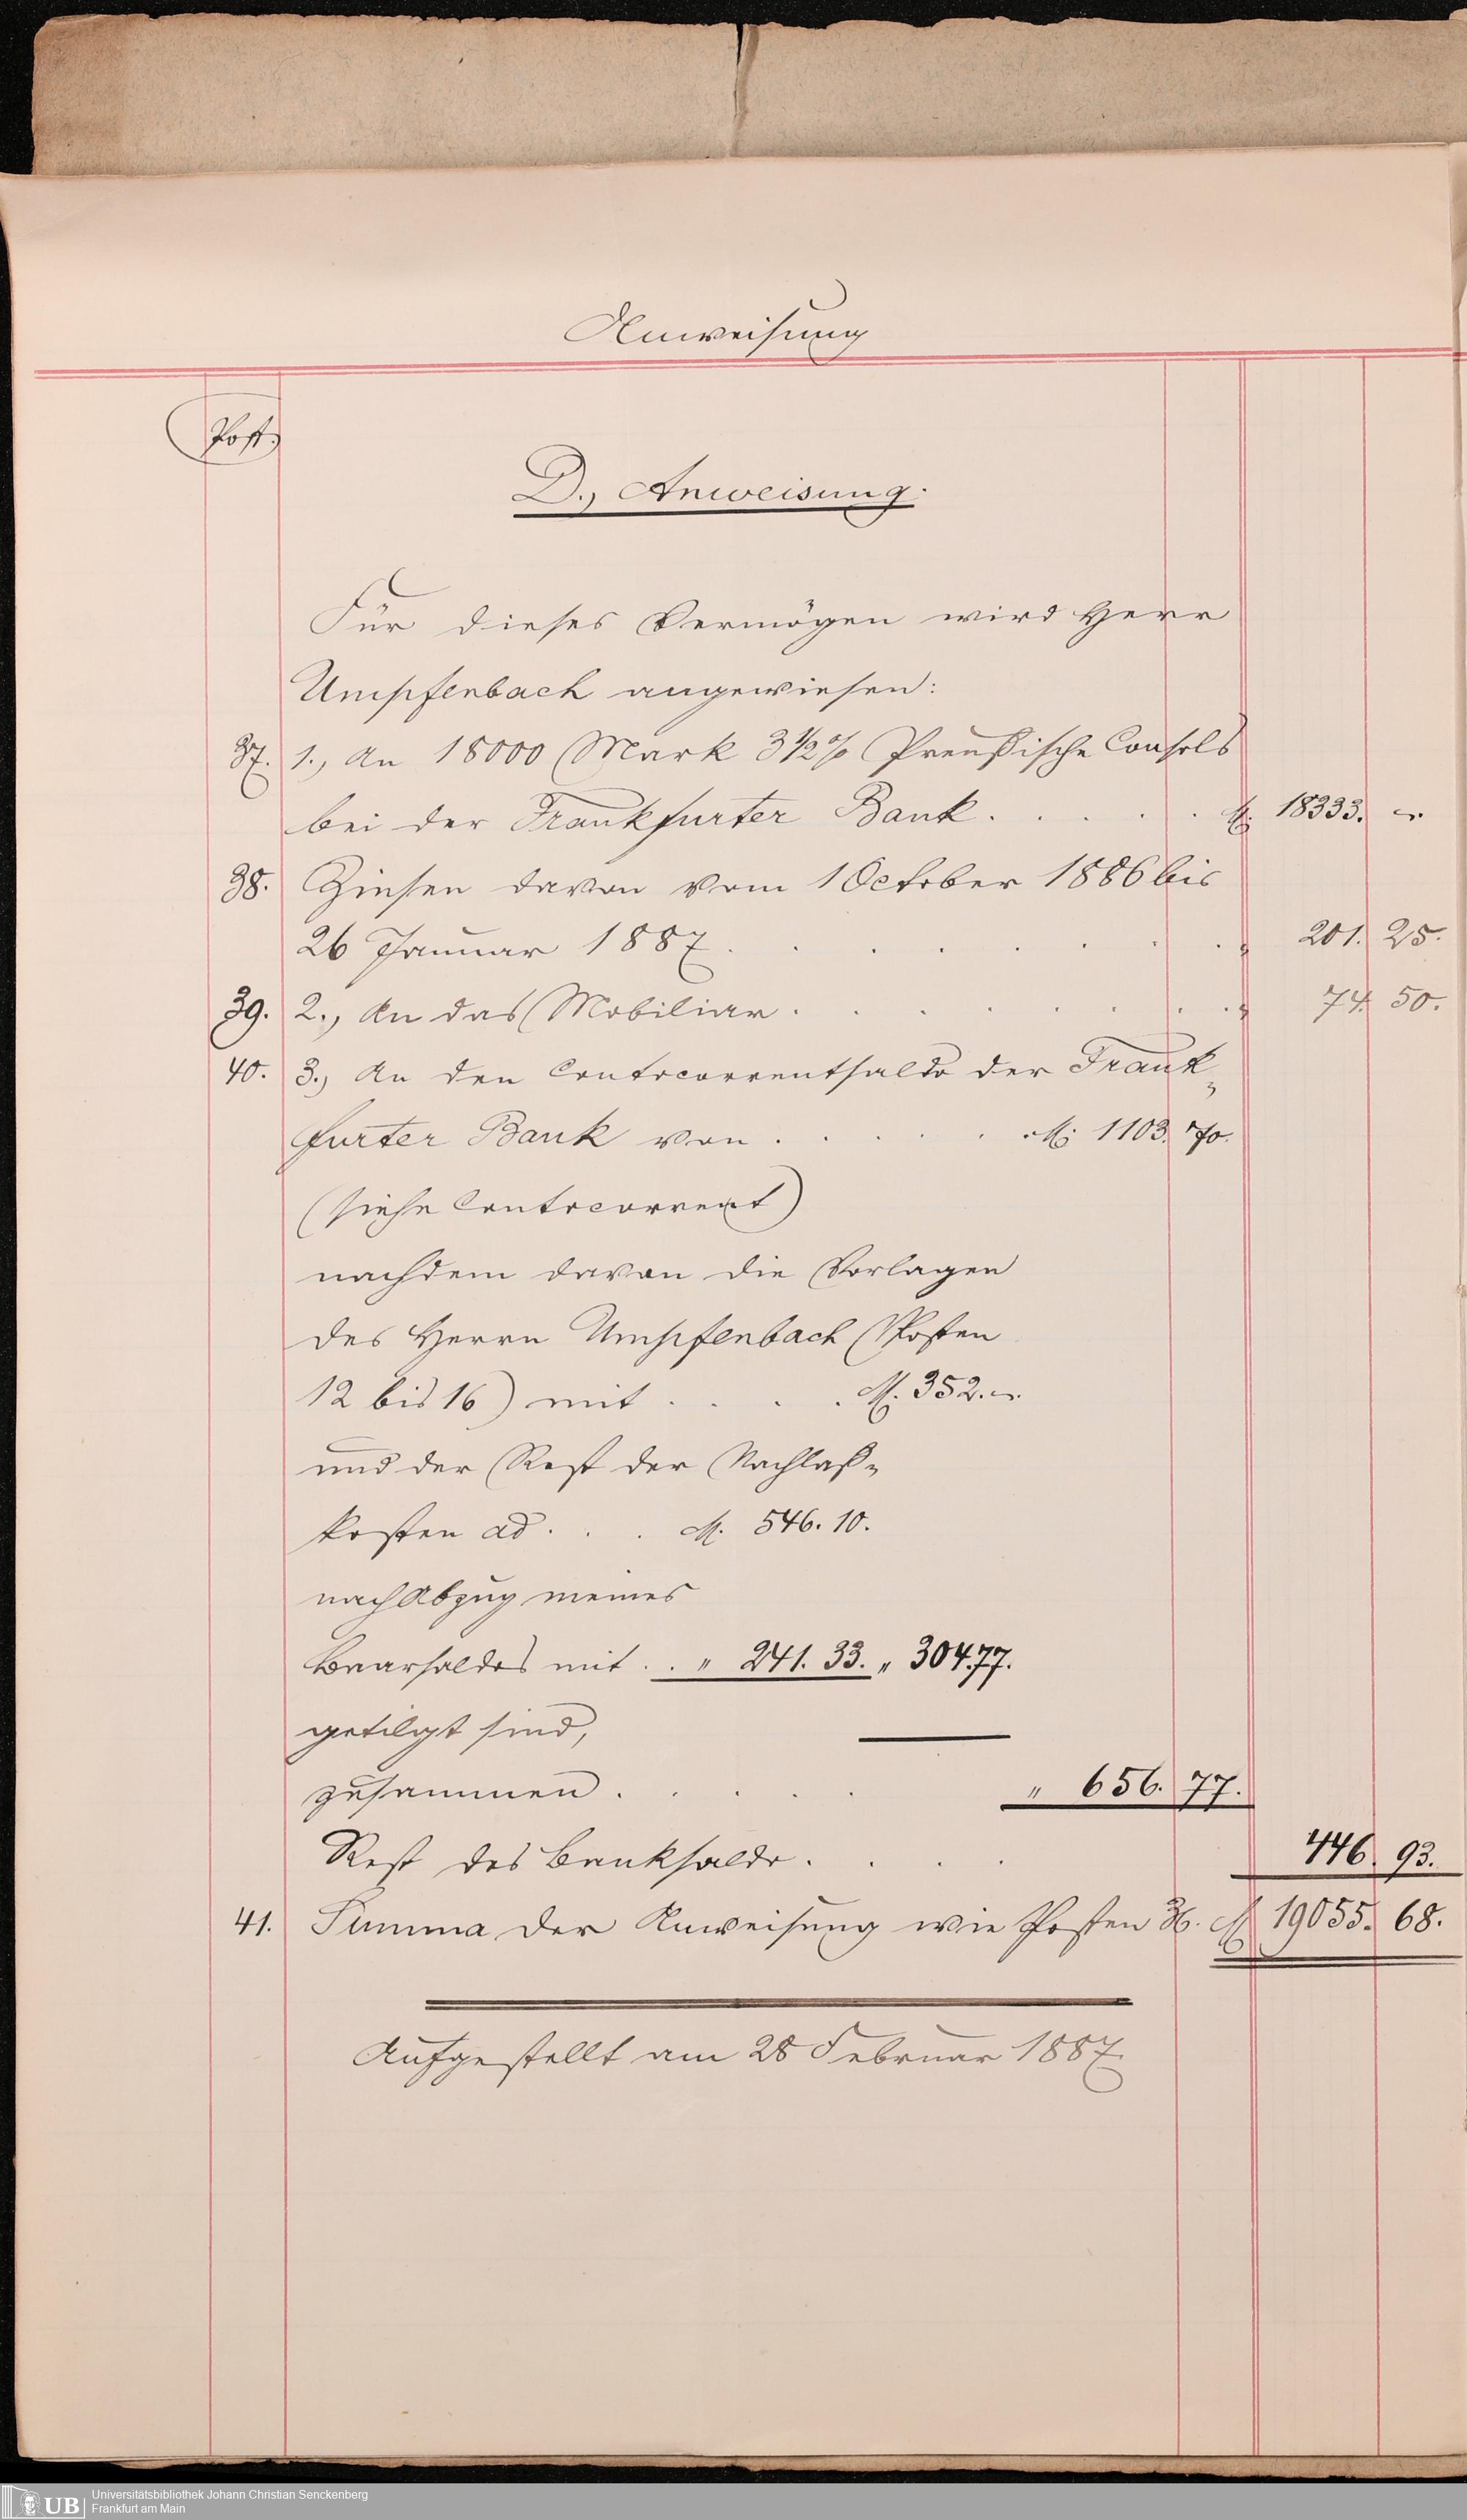 Anweisung
Post.
D., Anweisung.
Für dieses Vermögen wird Herr
Umpfenbach angewiesen:
37. 1., An 18000 Mark 3½% Preußische Consols
bei der Frankfurter Bank . . . . . M. 18333. –.
38. Zinsen davon vom 1 October 1886 bis
26 Januar 1887 . . . . . . . . " 201. 25.
39. 2., An das Mobiliar . . . . . . . . " 74. 50.
40. 3., An den Contocorrentsaldo der Frank-
furter Bank von . . . . . M. 1103. 70.
(siehe Contocorrent)
nachdem davon die Vorlagen
des Herrn Umpfenbach (Posten
12 bis 16) mit . . . . M. 352. –.
und der Rest der Nachlaß-
kosten ad . . . M. 546. 10.
nach Abzug meines
Baarsaldos mit . . " 241. 33. " 304.77.
getilgt sind,
zusammen . . . . . " 656. 77.
Rest des Banksaldo . . . . 446. 93.
41. Summa der Anweisung wie Posten 36. M 19055. 68.
Aufgestellt am 28 Februar 1887.
UB Universitätsbibliothek Johann Christian Senckenberg
Frankfurt am Main